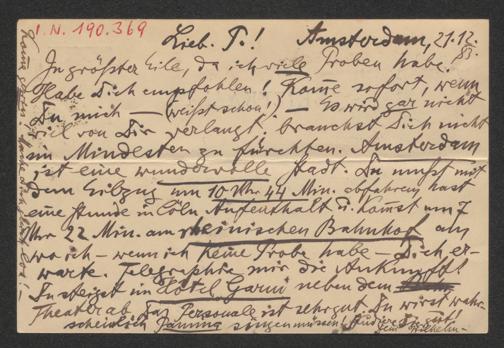 I.N. 190.369
Lieb. T.! Amsterdam, 21.12.
83.
In größter Eile, da ich viele Proben habe.
Habe Dich empfohlen! Kome sofort, wenn
Du mich — (weißt schon!) — Es wird gar nicht
viel von Dir verlangt, brauchst Dich nicht
im Mindesten zu fürchten. Amsterdam
ist eine wundervolle Stadt. Du mußt mit
dem Eilzug um 10 Uhr 44 Min. abfahren, hast
eine Stunde in Cöln Aufenthalt u. komst um 7
Uhr 22 Min. am rheinischen Bahnhof an
wo ich – wenn ich keine Probe habe – Dich er-
warte. Telegraphire mir die Ankunft!
Du steigst in Hôtel Garni neben dem
Theater ab. Das Personale ist sehr gut. Du wirst wahr-
scheinlich singen müssen! Studiere
Dein Wilhelm